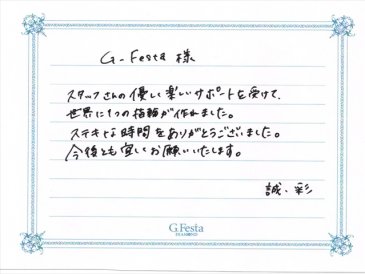 G-Festa 様
スタッフさんの優しく楽しいサポートを受けて、
世界に1つの指輪が作れました。
ステキな時間をありがとうございました。
今後とも宜しくお願いいたします。
誠、彩
G.Festa
DIAMOND